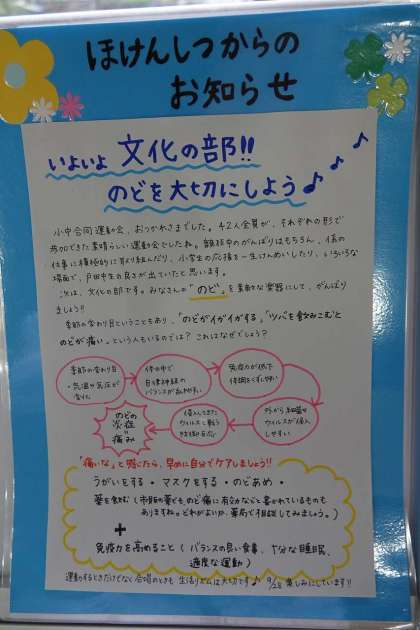 ほけんしつからの
お知らせ
いよいよ 文化の部!!
のどを大切にしよう♪
小中合同運動会、おつかれさまでした。42人全員が、それぞれの形で
参加できた素晴らしい運動会でしたね。競技中のがんばりはもちろん、係の
仕事に積極的に取り組んだり、小学生の応援を一生けんめいしたり、いろいろな
場面で、戸田中生の良さが出ていたと思います。
次は、文化の部です。みなさんの"のど"を素敵な楽器にして、がんばり
ましょう!!
季節の変わり目ということもあり、「のどがイガイガする」「ツバを飲みこむと
のどが痛い」という人もいるのでは？これはなぜでしょう？
季節の変わり目
・気温や気圧が
変化
体の中で
自律神経の
バランスが乱れやすい
免疫力が低下
体調をくずしやすい
外から細菌や
ウイルスが侵入
しやすい
侵入してきた
ウイルスと戦う
防御反応
のどの
炎症
＝
痛み
「痛いな」と感じたら、早めに自分でケアしましょう!!
うがいをする・マスクをする・のどあめ・
薬を飲む(市販の薬でものど痛に有効などと書かれているものも
ありますね。どれがよいか、薬局で相談してみましょう。)
＋
免疫力を高めること(バランスの良い食事、十分な睡眠、
適度な運動)
運動するときだけでなく合唱のときも生活リズムは大切です♪ 9/28 楽しみにしています!!